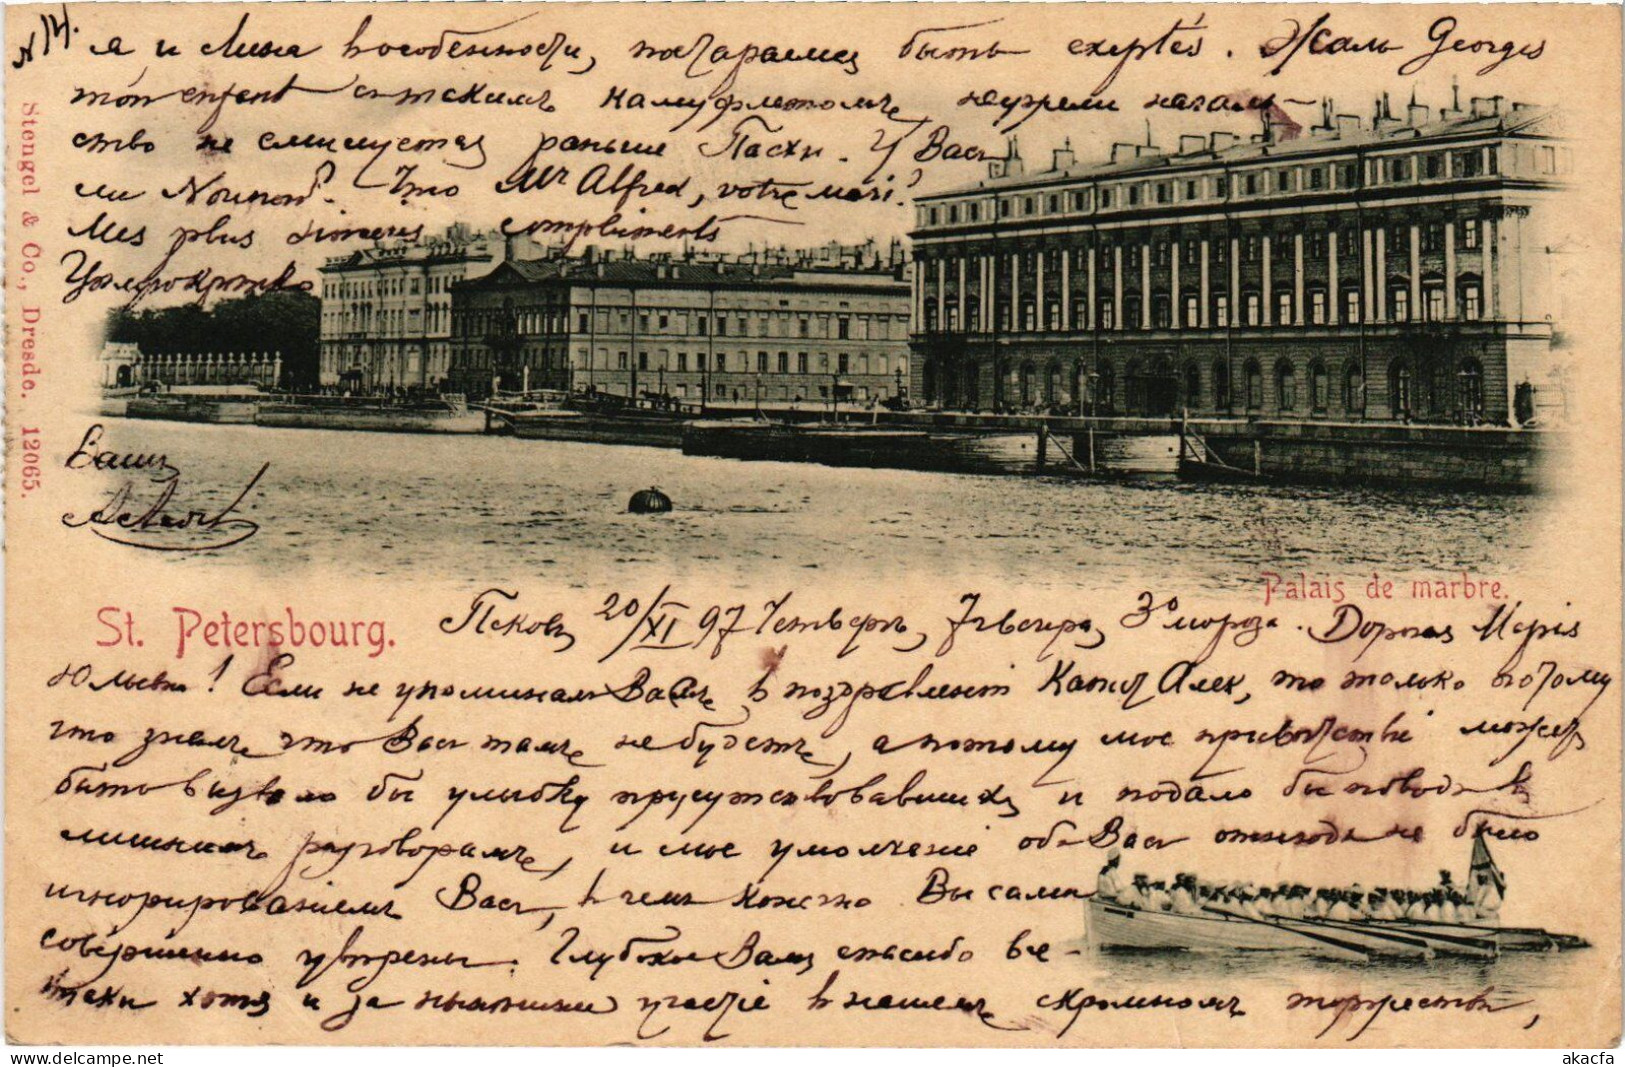 я и Лина въ особенности, постараемся быть exeptés. Жаль Georges
mon enfant съ камуфлетомъ, неужели началь-
ство не смилуется раньше Пасхи. У Васъ
ли Nounou? Что Mr Alfred, votre mari?
Mes plus sincères compliments
Вашъ
Stengel & Co., Dresde. 12065.
Palais de marbre.
St. Petersbourg.
Псковъ 20/XI 97 Четвергъ, 7 ч вечера, 3° мороза. Дорогая Марія
Юльевна! Если не упоминалъ Васъ въ поздравленіи Алек, то только потому
что зналъ что Васъ тамъ не будетъ, а потому мое привѣтствіе можетъ
быть вызвало бы улыбку присутствовавшихъ и подало бы поводъ къ
лишнимъ разговорамъ, и мое умолчаніе объ Васъ отнюдь не было
игнорированіемъ Васъ, въ чемъ конечно Вы сами
совершенно увѣрены. Глубокое Вамъ спасибо все-
таки хотя и за участіе въ нашемъ скромномъ торжествѣ,
akacfa